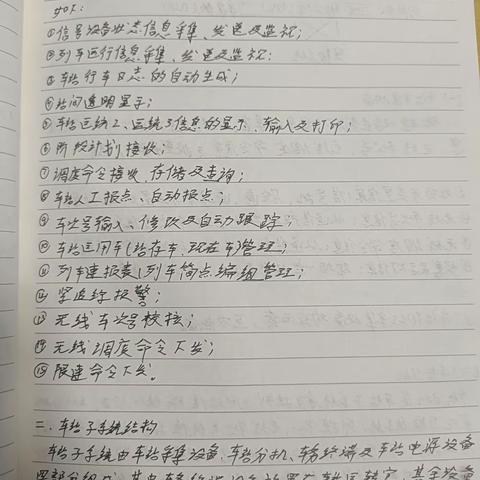 如下:
①信号设备状态信息采集、发送及监视;
②列车运行信息采集、发送及监视;
③车站行车日志的自动生成;
④站间透明显示;
⑤车站运统2、运统3信息的显示、输入及打印;
⑥阶段计划接收;
⑦调度命令接收、存储及查询;
⑧车站人工报点、自动报点;
⑨车次号输入、修改及自动跟踪;
⑩车站运用车(站存车、现在车)管理;
⑪列车速报表(列车简点编组管理;
⑫紧追踪报警;
⑬无线车次号校核;
⑭无线调度命令下发;
⑮限速命令下发。
二、车站子系统结构
车站子系统由车站采集设备、车站分机、车务终端及车站电源设备
四部分组成,其中车务终端设备放置在车站运转室,其余设备